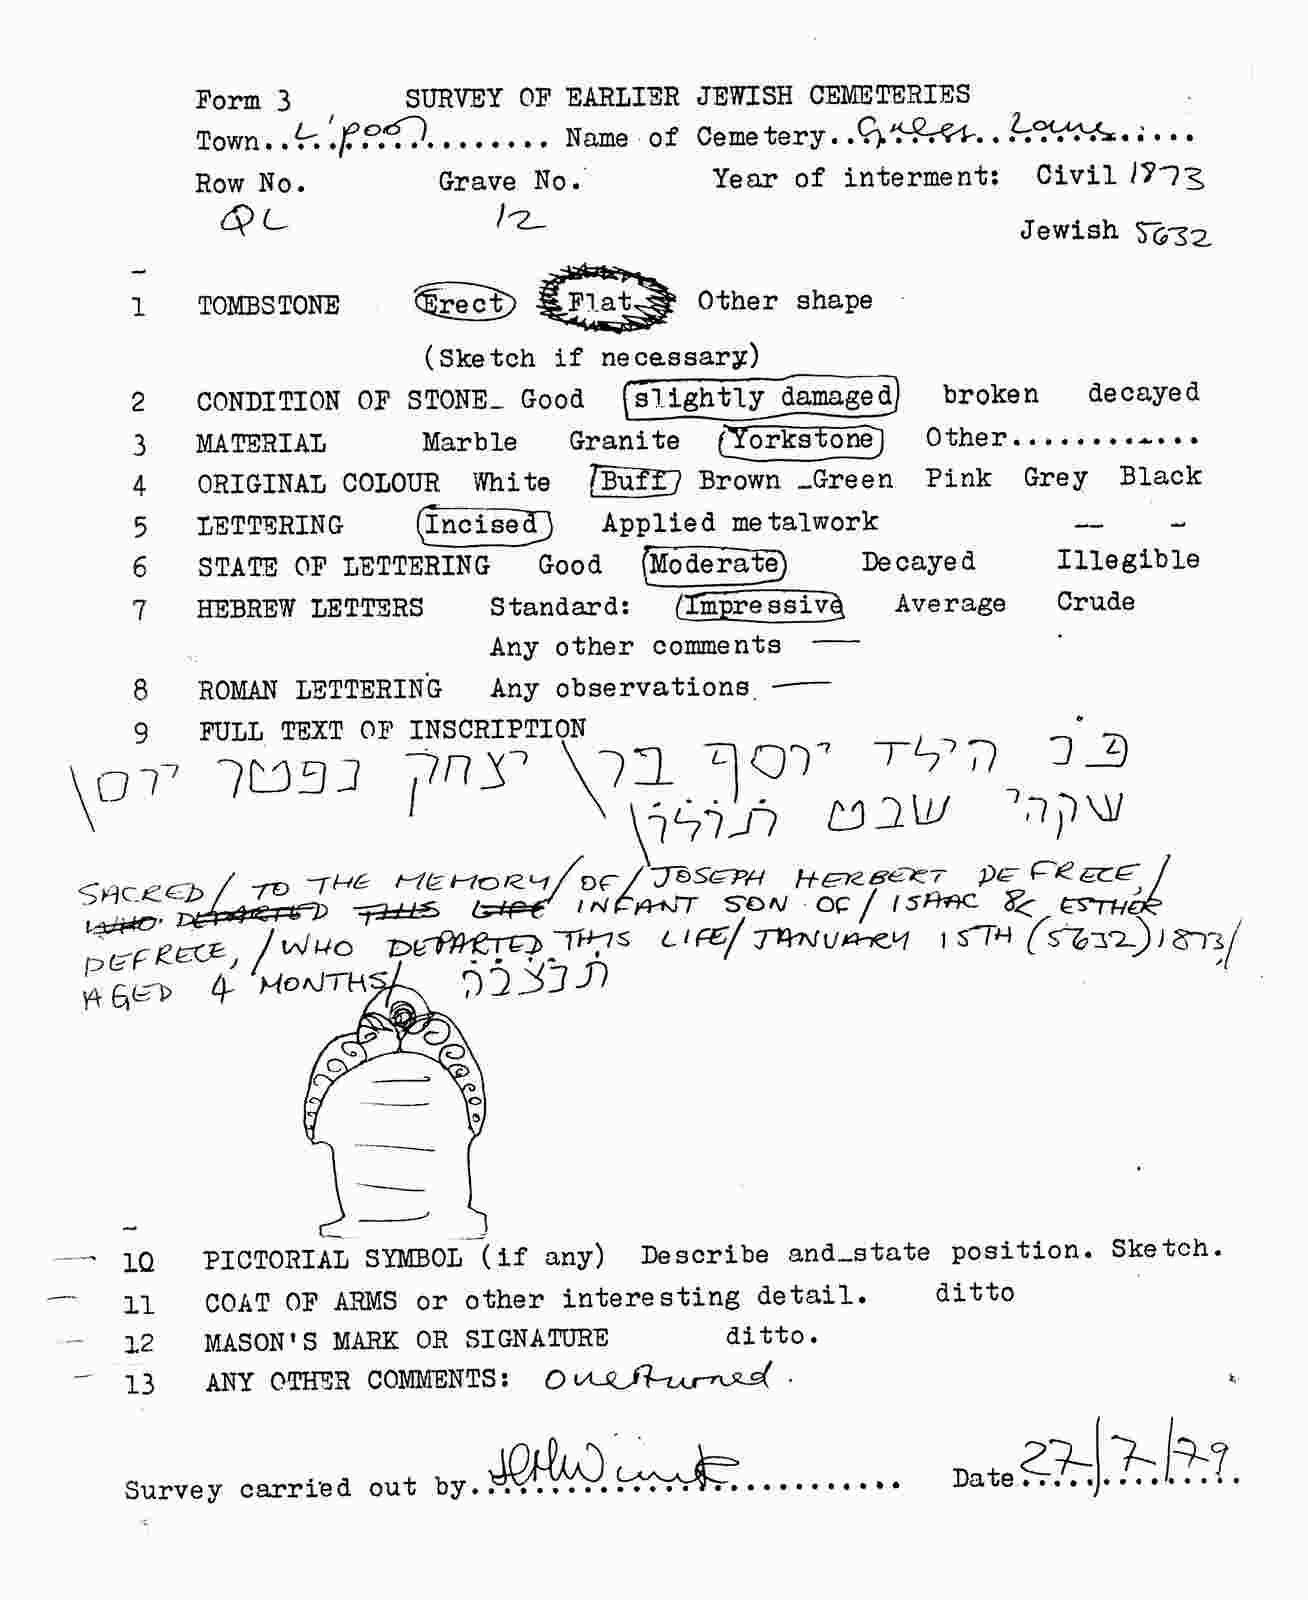 Form 3 SURVEY OF EARLIER JEWISH CEMETERIES
Town..L'pool......... Name of Cemetery..Green Lane.....
Row No. Grave No. Year of interment: Civil 1873
QL 12
Jewish 5632
1 TOMBSTONE Erect Flat Other shape
(Sketch if necessary)
2 CONDITION OF STONE_ Good slightly damaged broken decayed
3 MATERIAL Marble Granite Yorkstone Other............
4 ORIGINAL COLOUR White Buff Brown _Green Pink Grey Black
5 LETTERING Incised Applied metalwork
6 STATE OF LETTERING Good Moderate Decayed Illegible
7 HEBREW LETTERS Standard: Impressive Average Crude
Any other comments —
8 ROMAN LETTERING Any observations —
9 FULL TEXT OF INSCRIPTION
פ"נ הילד יוסף בר\ יצחק נפטר יום\
שקהי שבט
SACRED/ TO THE MEMORY/ OF/ JOSEPH HERBERT DE FRECE,/
WHO DEPARTED THIS LIFE INFANT SON OF/ ISAAC & ESTHER
DEFRECE, /WHO DEPARTED THIS LIFE/ JANUARY 15TH (5632) 1873/
AGED 4 MONTHS/ תנצבה
10 PICTORIAL SYMBOL (if any) Describe and_state position. Sketch.
11 COAT OF ARMS or other interesting detail. ditto
12 MASON'S MARK OR SIGNATURE ditto.
13 ANY OTHER COMMENTS: Overturned.
Survey carried out by........................... Date 27/7/79